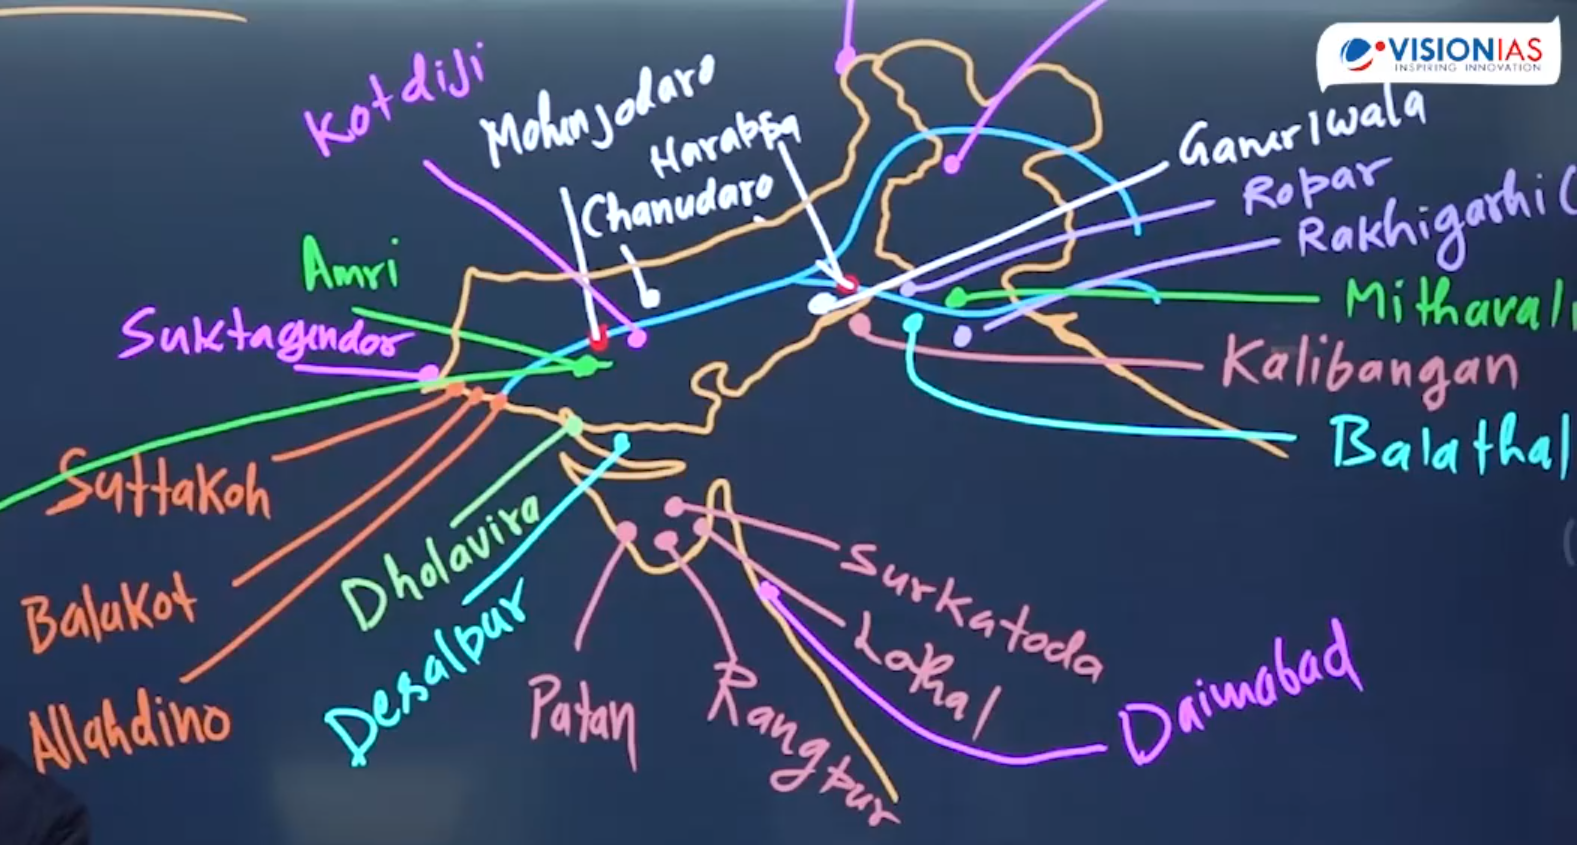 VISIONIAS
INSPIRING INNOVATION
Kotdiji
Mohenjodaro
Harappa
Chanudaro
Ganeriwala
Ropar
Rakhigarhi (
Amri
Suktagendor
Mithaval
Kalibangan
Balathal
Suttakoh
Balakot
Allahdino
Dholavira
Desalpur
Patan
Rangpur
Lothal
Surkatoda
Daimabad